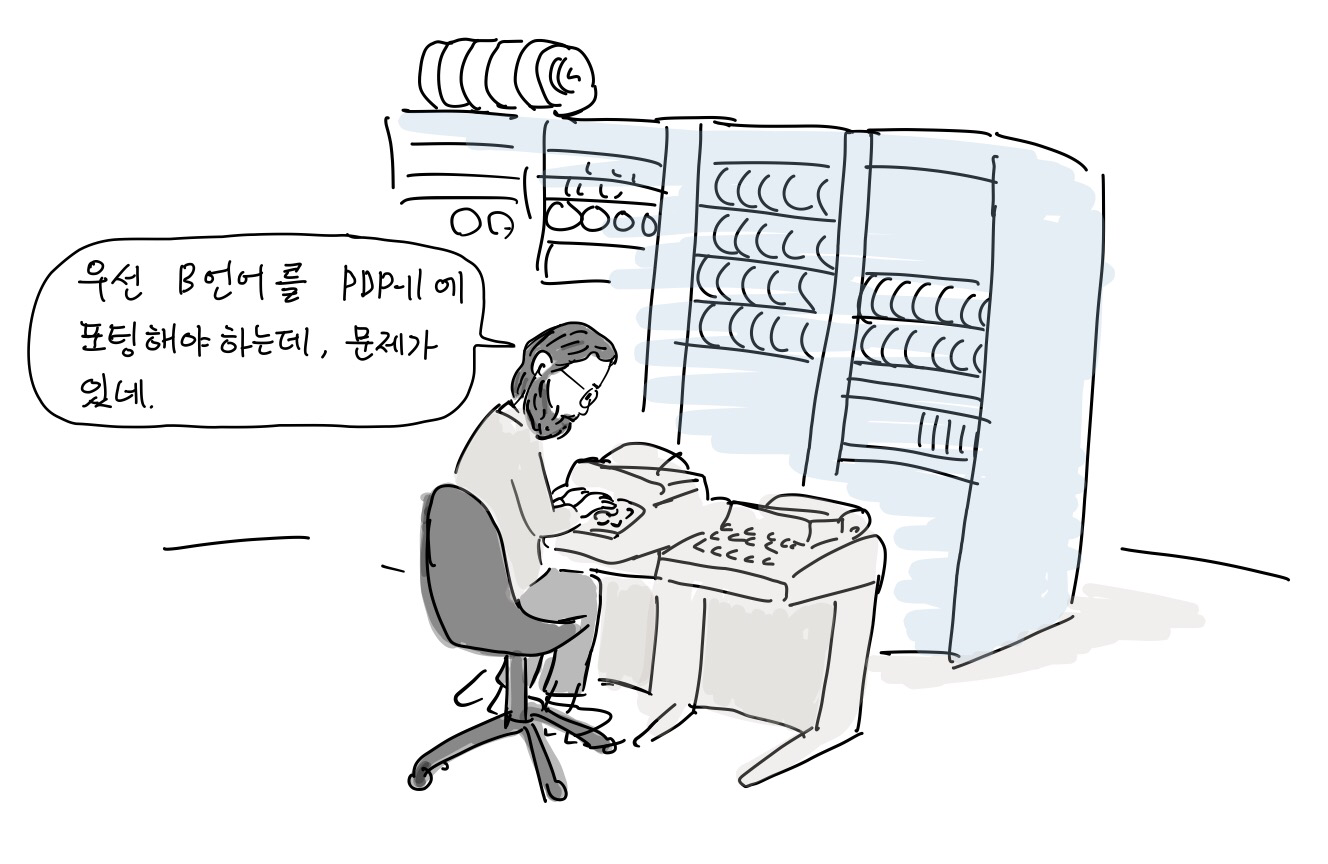 우선 B언어를 PDP-11에
포팅해야 하는데, 문제가
있네.